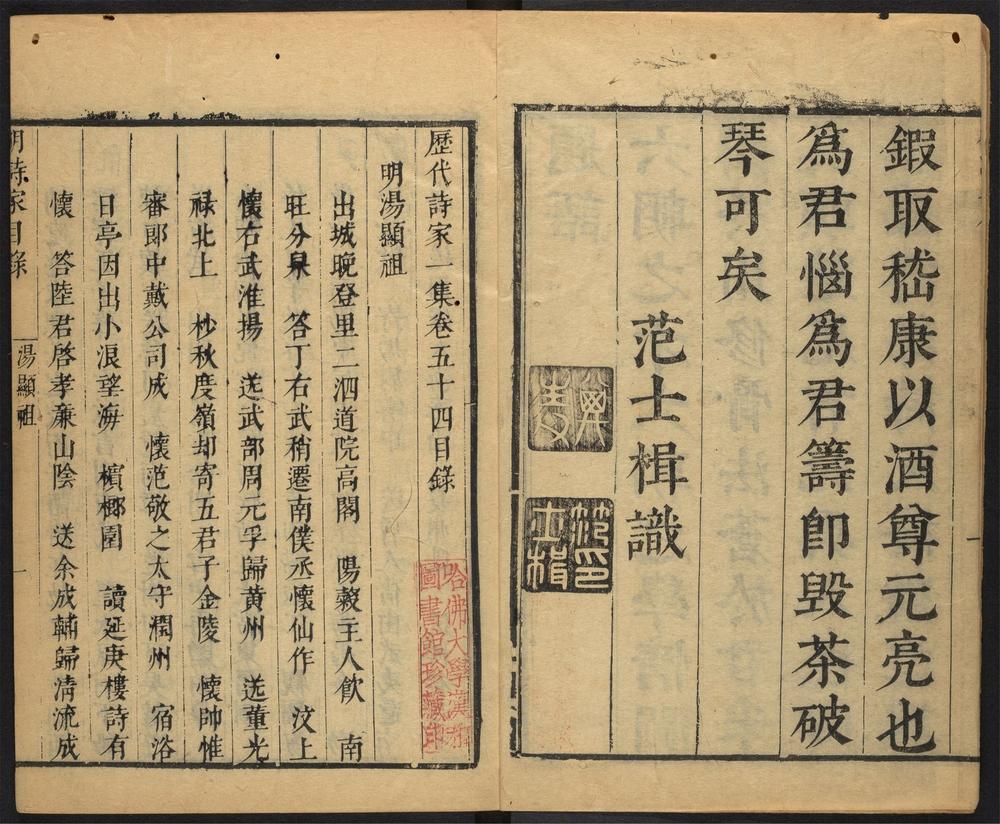 鍜取嵇康以酒尊元亮也
爲君惱爲君籌卽毀茶破
琴可矣
范士楫識
范印
士楫
歷代詩家一集卷五十四目錄
明湯顯祖
出城晚登里二泗道院高閣　陽穀主人飲　南
旺分泉　答丁右武稍遷南僕丞懷仙作　汶上
懷右武淮揚　送武部周元孚歸黄州　送董光
禄北上　杪秋度嶺却寄五君子金陵　懷帥惟
審郎中戴公司成　懷范敬之太守潤州　宿浴
日亭因出小浪望海　檳榔園　讀延庚樓詩有
懷　答陸君啓孝廉山陰　送余成輔歸清流成
明詩家目錄
湯顯祖
一
哈佛大學漢和
圖書館珍藏印